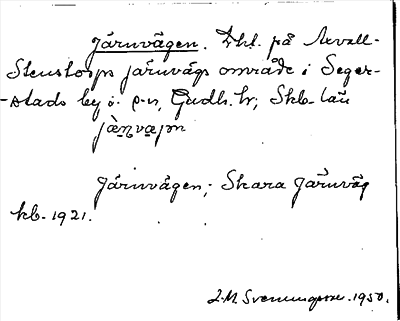 Järnvägen. Dhl. på Axvall-
Stenstorps järnvägs område i Seger-
-stads by o. s-n, Gudh. hr; Skb- län
Järnvägen; Skara Järnväg
kb. 1921.
J. M. Svenungsson. 1950.